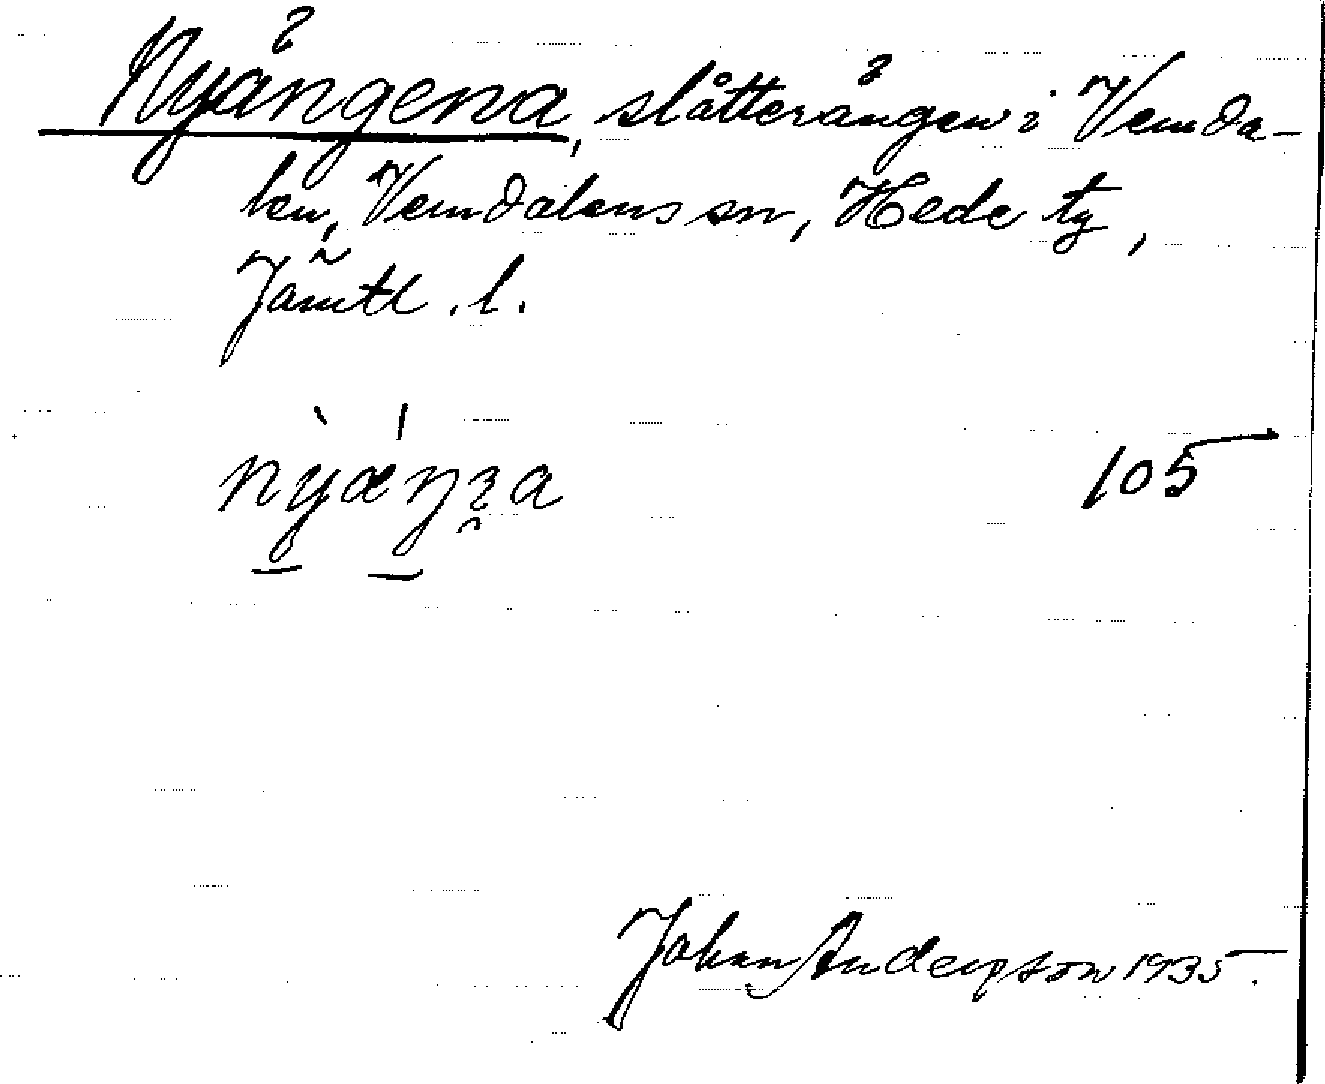 Nyängena, slåtterängen i Vemda-
len, Vemdalens sn, Hede tg,
Jämtl. l.
105
Johan Anderson 1935.